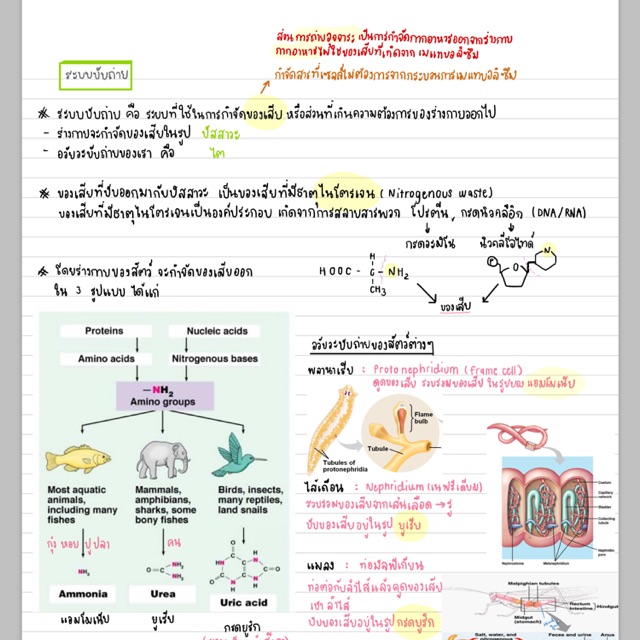 ส่วน การถ่ายอุจจาระ เป็นการกำจัดกากอาหารออกจากร่างกาย
กากอาหารไม่ใช่ของเสียที่เกิดจาก เมแทบอลิซึม
ระบบขับถ่าย
กำจัดสารที่เซลล์ไม่ต้องการจากกระบวนการเมแทบอลิซึม
* ระบบขับถ่าย คือ ระบบที่ใช้ในการกำจัดของเสีย หรือส่วนที่เกินความต้องการของร่างกายออกไป
- ร่างกายจะกำจัดของเสียในรูป ปัสสาวะ
- อวัยวะขับถ่ายของเรา คือ ไต
* ของเสียที่ขับออกมากับปัสสาวะ เป็นของเสียที่มีธาตุไนโตรเจน (Nitrogenous waste)
ของเสียที่มีธาตุไนโตรเจนเป็นองค์ประกอบ เกิดจากการสลายสารพวก โปรตีน, กรดนิวคลีอิก (DNA/RNA)
กรดอะมิโน นิวคลีโอไทด์
* โดยร่างกายของสัตว์ จะกำจัดของเสียออก
ใน 3 รูปแบบ ได้แก่
H
HOOC - C - NH2
CH3
P O N
ของเสีย
Proteins Nucleic acids
Amino acids Nitrogenous bases
—NH2
Amino groups
Most aquatic animals, including many fishes
Mammals, amphibians, sharks, some bony fishes
Birds, insects, many reptiles, land snails
กุ้ง หอย ปู ปลา คน
NH3
Ammonia Urea Uric acid
แอมโมเนีย ยูเรีย กรดยูริก
อวัยวะขับถ่ายของสัตว์ต่างๆ
พลานาเรีย : Protonephridium (frame cell)
ดูดของเสีย รวบรวมของเสีย ในรูปของ แอมโมเนีย
Flame bulb
Tubule
Tubules of protonephridia
ไส้เดือน : Nephridium (เนฟริเดียม)
รวบรวมของเสียจากเส้นเลือด → รู
ขับของเสียอยู่ในรูป ยูเรีย
Coelom
Capillary network
Bladder
Collecting tubule
Nephridiopore
Nephrostome
Metanephridium
แมลง : ท่อมัลพิเกียน
ท่อต่อกับลำไส้แล้วดูดของเสีย
เข้าลำไส้
ขับของเสียอยู่ในรูป กรดยูริก
Malpighian tubules
Rectum
Hindgut
Midgut (stomach)
Salt, water, and
Feces and urine
Anus